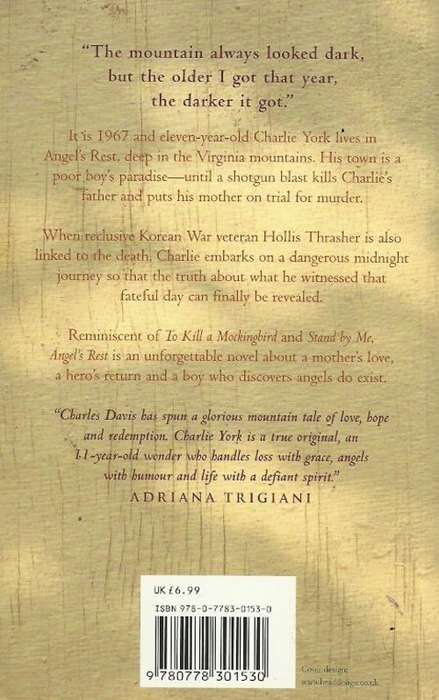 “The mountain always looked dark,
but the older I got that year,
the darker it got.”
It is 1967 and eleven-year-old Charlie York lives in
Angel's Rest, deep in the Virginia mountains. His town is a
poor boy's paradise—until a shotgun blast kills Charlie's
father and puts his mother on trial for murder.
When reclusive Korean War veteran Hollis Thrasher is also
linked to the death, Charlie embarks on a dangerous midnight
journey so that the truth about what he witnessed that
fateful day can finally be revealed.
Reminiscent of To Kill a Mockingbird and Stand by Me,
Angel's Rest is an unforgettable novel about a mother's love,
a hero's return and a boy who discovers angels do exist.
“Charles Davis has spun a glorious mountain tale of love, hope
and redemption. Charlie York is a true original, an
11-year-old wonder who handles loss with grace, angels
with humour and life with a defiant spirit.”
ADRIANA TRIGIANI
UK £6.99
ISBN 978-0-7783-0153-0
9 780778 301530
Cover design: